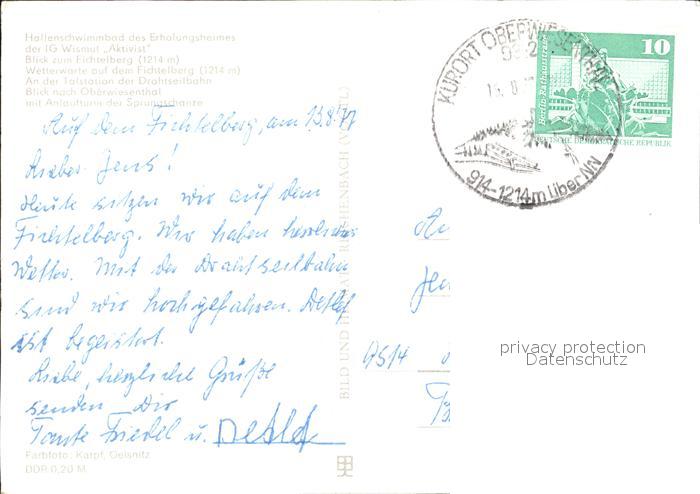 Hallenschwimmbad des Erholungsheimes
der IG Wismut „Aktivist"
Blick zum Fichtelberg (1214 m)
Wetterwarte auf dem Fichtelberg (1214 m)
An der Talstation der Drahtseilbahn
Blick nach Oberwiesenthal
mit Anlaufturm der Sprungschanze
Auf dem Fichtelberg, am 13.8.77
Lieber Jens!
Heute sitzen wir auf dem
Fichtelberg. Wir haben herrliches
Wetter. Mit der Drahtseilbahn
sind wir hochgefahren. Detlef
ist begeistert.
Liebe, herzliche Grüße
senden Dir
Tante Friedel u. Detlef
Farbfoto: Karpf, Geisnitz
DDR 0,20 M
BILD UND HEIMAT REICHENBACH
KURORT OBERWIESENTHAL
914-1214m über NN
10
Berlin-Rathausstraße
DEUTSCHE DEMOKRATISCHE REPUBLIK
An
9514
privacy protection
Datenschutz